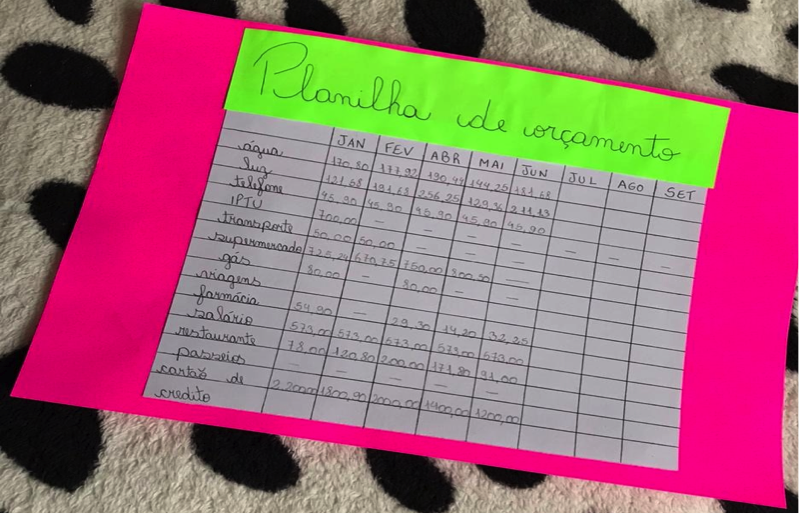 Planilha de orçamento
JAN FEV ABR MAI JUN JUL AGO SET
água 170,80 177,92 190,44 144,25 181,68
luz 121,68 191,68 256,25 129,36 211,13
telefone 45,90 45,90 45,90 45,90 45,90
IPTU 700,00 — — — — — — —
transporte 50,00 50,00 — — —
supermercado 725,24 670,75 750,00 800,50 —
gás 80,00 — 80,00
viagens
farmácia 54,90 — 29,30 14,20 32,25
salário 573,00 573,00 573,00 573,00 573,00
restaurante 78,00 120,80 200,00 171,80 91,00
passeios — — — — —
cartão de
credito 2.200,00 1800,90 2000,00 1400,00 1200,00